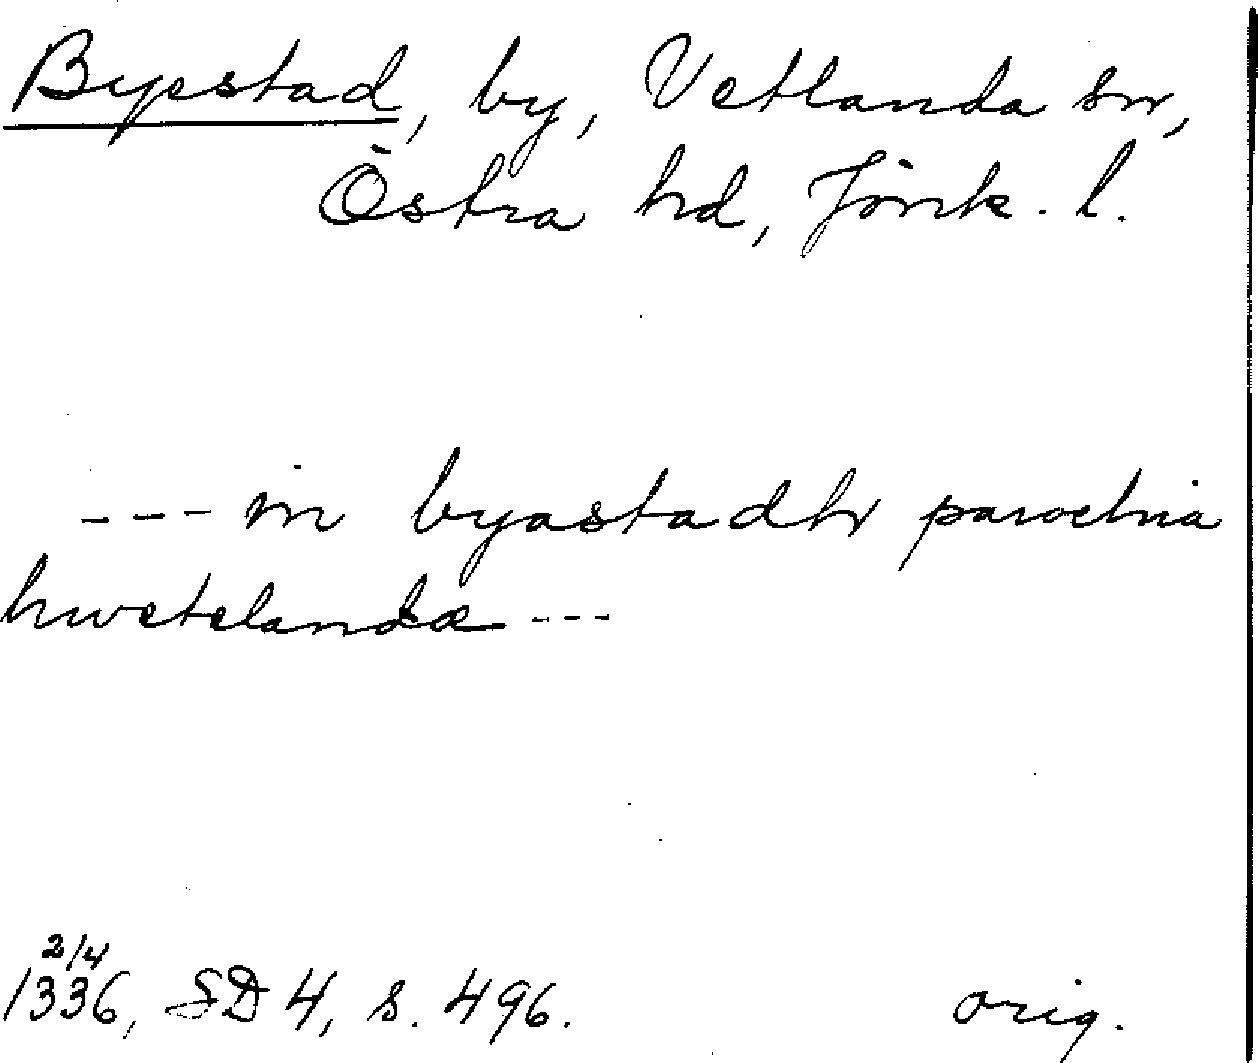 Byestad, by, Vetlanda sn,
Östra hd, Jönk. l.
--- in byastadhr parochia
hwetelanda ---
2/4
1336, SD 4, s. 496. orig.